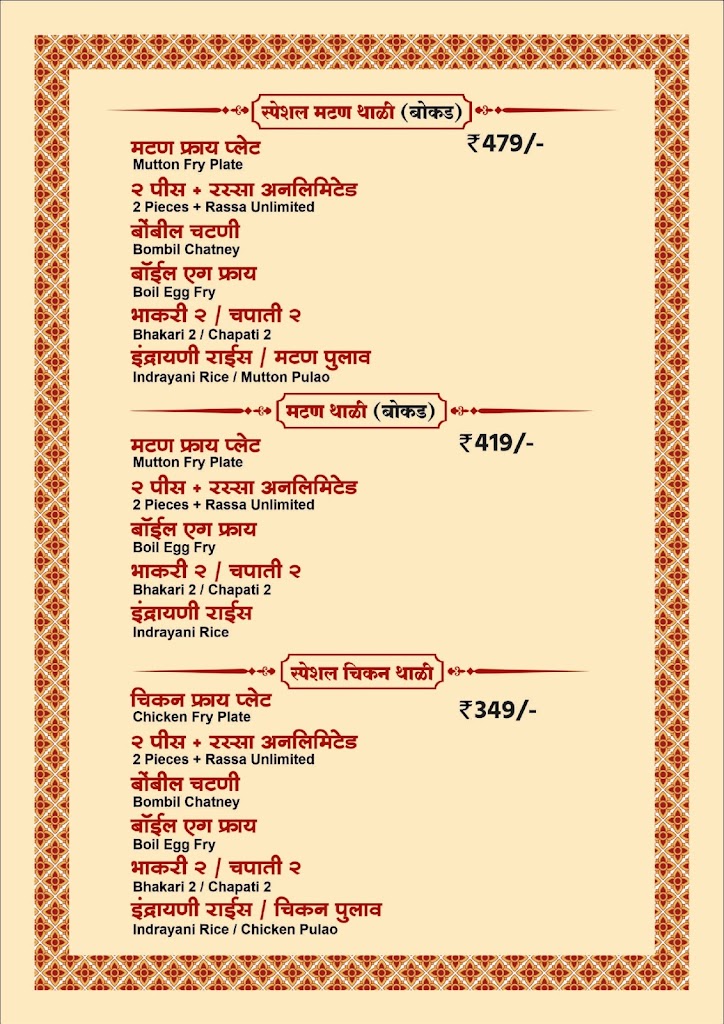 स्पेशल मटण थाळी (बोकड)
₹479/-
मटण फ्राय प्लेट
Mutton Fry Plate
२ पीस + रस्सा अनलिमिटेड
2 Pieces + Rassa Unlimited
बोंबील चटणी
Bombil Chatney
बॉईल एग फ्राय
Boil Egg Fry
भाकरी २ / चपाती २
Bhakari 2 / Chapati 2
इंद्रायणी राईस / मटण पुलाव
Indrayani Rice / Mutton Pulao
मटण थाळी (बोकड)
₹419/-
मटण फ्राय प्लेट
Mutton Fry Plate
२ पीस + रस्सा अनलिमिटेड
2 Pieces + Rassa Unlimited
बॉईल एग फ्राय
Boil Egg Fry
भाकरी २ / चपाती २
Bhakari 2 / Chapati 2
इंद्रायणी राईस
Indrayani Rice
स्पेशल चिकन थाळी
₹349/-
चिकन फ्राय प्लेट
Chicken Fry Plate
२ पीस + रस्सा अनलिमिटेड
2 Pieces + Rassa Unlimited
बोंबील चटणी
Bombil Chatney
बॉईल एग फ्राय
Boil Egg Fry
भाकरी २ / चपाती २
Bhakari 2 / Chapati 2
इंद्रायणी राईस / चिकन पुलाव
Indrayani Rice / Chicken Pulao